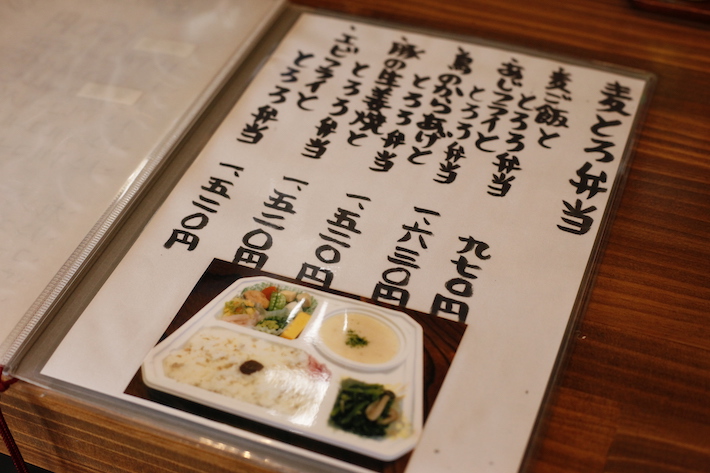 麦とろ弁当
・麦ご飯と
とろろ弁当
九七〇円
・あじフライと
とろろ弁当
一、六三〇円
・鳥のからあげと
とろろ弁当
一、五二〇円
・豚の生姜焼と
とろろ弁当
一、五二〇円
・エビフライと
とろろ弁当
一、五二〇円